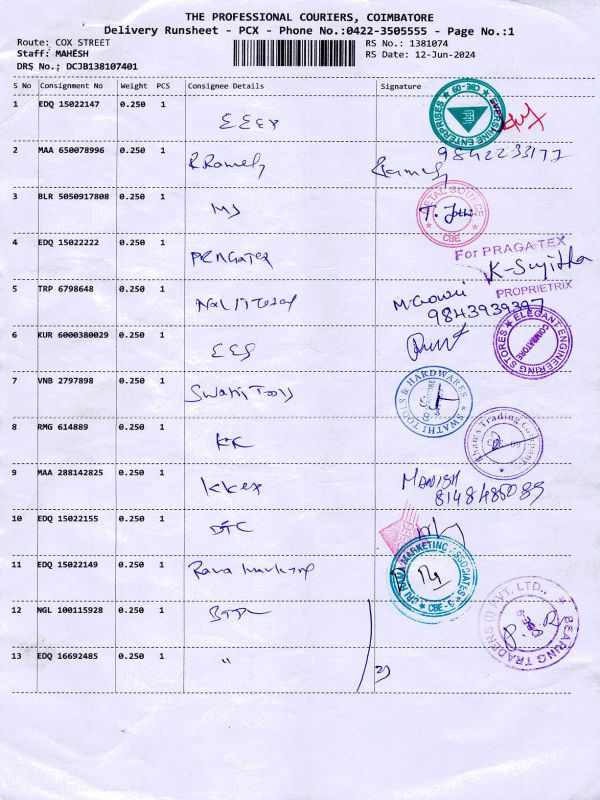 THE PROFESSIONAL COURIERS, COIMBATORE
Delivery Runsheet - PCX - Phone No.:0422-3505555 - Page No.:1
Route: COX STREET RS No.: 1381074
Staff: MAHESH RS Date: 12-Jun-2024
DRS No.; DCJB138107401
S No Consignment No Weight PCS Consignee Details Signature
1 EDQ 15022147 0.250 1
EVERSHINE ENTERPRISES CBE-09
2 MAA 650078996 0.250 1 R.Ramesh 9842233177
3 BLR 5050917808 0.250 1 MS T. Jothi
METAL SOURCE CBE
4 EDQ 15022222 0.250 1
For PRAGATEX
K-Sujitha
PROPRIETRIX
5 TRP 6798648 0.250 1 M.Gowri
9843939397
6 KUR 6000380029 0.250 1 EES
ELEGANT ENGINEERING STORES COIMBATORE
7 VNB 2797898 0.250 1 Swathi Tools
SWATHI TOOLS & HARDWARES
8 RMG 614889 0.250 1 KK
Trading Company
9 MAA 288142825 0.250 1 KKex MANISH
8148485089
10 EDQ 15022155 0.250 1 DTC
11 EDQ 15022149 0.250 1
MARKETING ASSOCIATES CBE-9
12 NGL 100115928 0.250 1
BEARING TRADERS (I) PVT. LTD.,
13 EDQ 16692485 0.250 1 "